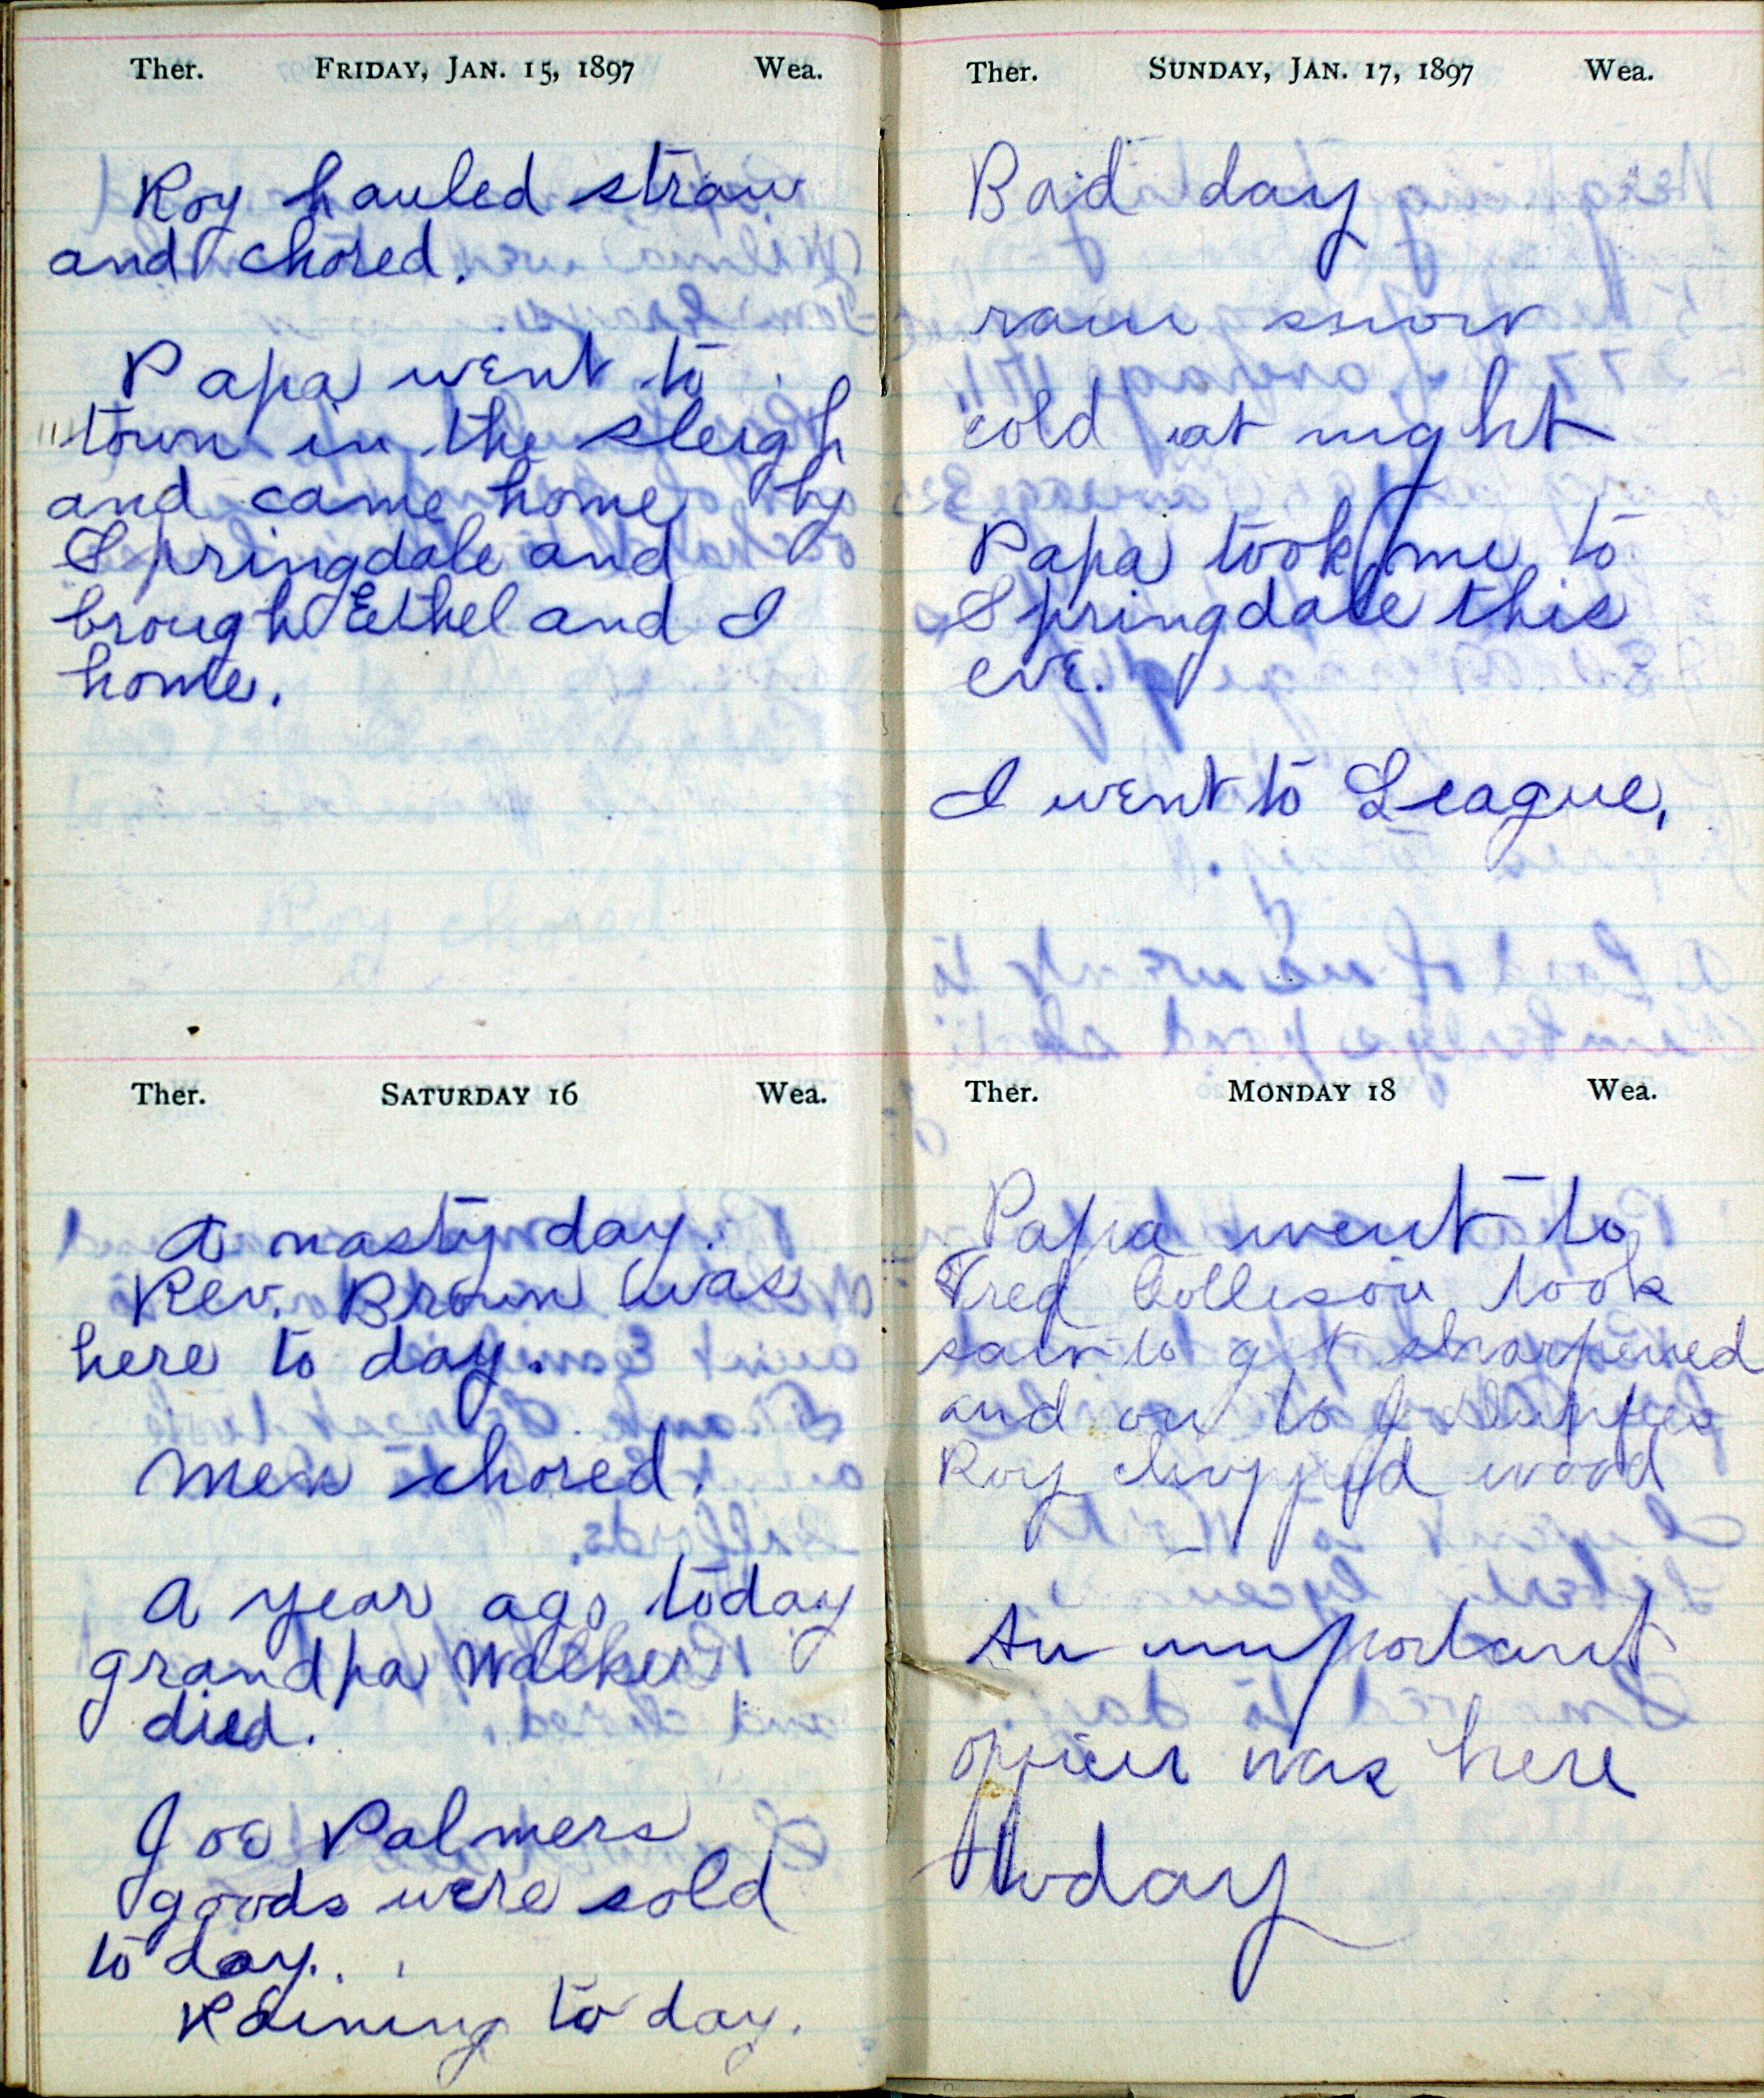 Ther. FRIDAY, JAN. 15, 1897 Wea.
Roy hauled straw
and chored.
Papa went to
town in the sleigh
and came home by
Springdale and
brough Ethel and I
home.
Ther. SATURDAY 16 Wea.
A nasty day.
Rev. Brown was
here to day.
Men chored.
A year ago today
grandpa Walker
died.
Joe Palmers
goods were sold
to day.
Raining to day.
Ther. SUNDAY, JAN. 17, 1897 Wea.
Bad day
rain snow
cold at night
Papa took me to
Springdale this
eve.
I went to League.
Ther. MONDAY 18 Wea.
Papa went to
Fred Collison took
saw to get sharpened
and on to J
Roy chopped wood
An important
officer was here
today